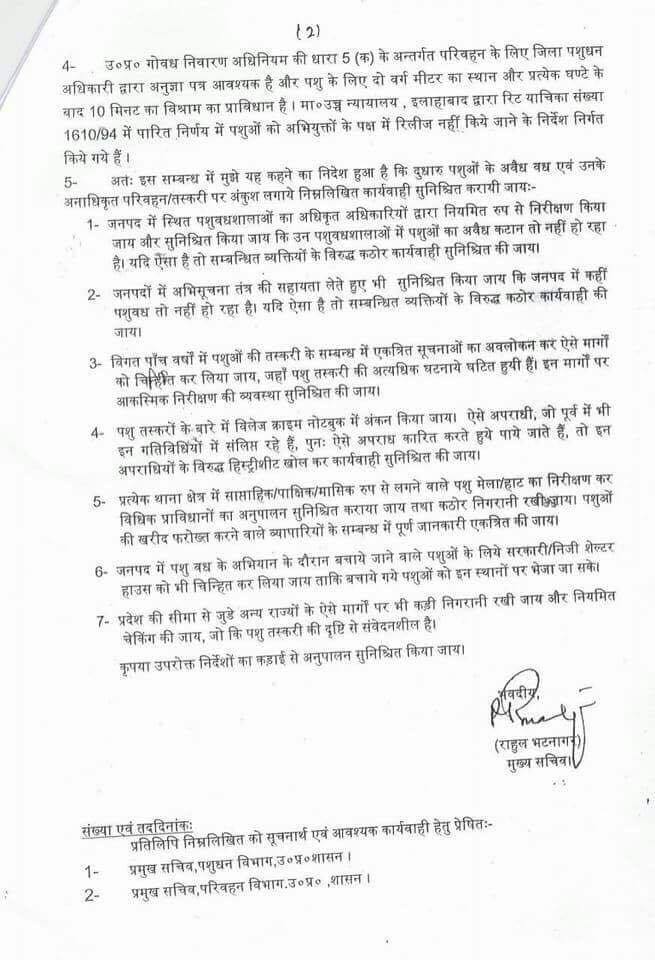 (2)
4- उ०प्र० गोवध निवारण अधिनियम की धारा 5 (क) के अन्तर्गत परिवहन के लिए जिला पशुधन
अधिकारी द्वारा अनुज्ञा पत्र आवश्यक है और पशु के लिए दो वर्ग मीटर का स्थान और प्रत्येक घण्टे के
बाद 10 मिनट का विश्राम का प्राविधान है। मा०उच्च न्यायालय , इलाहाबाद द्वारा रिट याचिका संख्या
1610/94 में पारित निर्णय में पशुओं को अभियुक्तों के पक्ष में रिलीज नहीं किये जाने के निर्देश निर्गत
किये गये हैं ।
5- अतः इस सम्बन्ध में मुझे यह कहने का निदेश हुआ है कि दुधारु पशुओं के अवैध वध एवं उनके
अनाधिकृत परिवहन/तस्करी पर अंकुश लगाये निम्नलिखित कार्यवाही सुनिश्चित करायी जायः-
1- जनपद में स्थित पशुवधशालाओं का अधिकृत अधिकारियों द्वारा नियमित रुप से निरीक्षण किया
जाय और सुनिश्चित किया जाय कि उन पशुवधशालाओं में पशुओं का अवैध कटान तो नहीं हो रहा
है। यदि ऐसा है तो सम्बन्धित व्यक्तियों के विरुद्ध कठोर कार्यवाही सुनिश्चित की जाय।
2- जनपदों में अभिसूचना तंत्र की सहायता लेते हुए भी सुनिश्चित किया जाय कि जनपद में कहीं
पशुवध तो नहीं हो रहा है। यदि ऐसा है तो सम्बन्धित व्यक्तियों के विरुद्ध कठोर कार्यवाही की
जाय।
3- विगत पाँच वर्षो में पशुओं की तस्करी के सम्बन्ध में एकत्रित सूचनाओं का अवलोकन कर ऐसे मार्गों
को चिन्हित कर लिया जाय, जहाँ पशु तस्करी की अत्यधिक घटनाये घटित हुयी हैं। इन मार्गों पर
आकस्मिक निरीक्षण की व्यवस्था सुनिश्चित की जाय।
4- पशु तस्करों के बारे में विलेज क्राइम नोटबुक में अंकन किया जाय। ऐसे अपराधी, जो पूर्व में भी
इन गतिविधियों में संलिप्त रहे हैं, पुनः ऐसे अपराध कारित करते हुये पाये जाते हैं, तो इन
अपराधियों के विरुद्ध हिस्ट्रीशीट खोल कर कार्यवाही सुनिश्चित की जाय।
5- प्रत्येक थाना क्षेत्र में साप्ताहिक/पाक्षिक/मासिक रुप से लगने वाले पशु मेला/हाट का निरीक्षण कर
विधिक प्राविधानों का अनुपालन सुनिश्चित कराया जाय तथा कठोर निगरानी रखी जाय। पशुओं
की खरीद फरोख्त करने वाले व्यापारियों के सम्बन्ध में पूर्ण जानकारी एकत्रित की जाय।
6- जनपद में पशु वध के अभियान के दौरान बचाये जाने वाले पशुओं के लिये सरकारी/निजी शेल्टर
हाउस को भी चिन्हित कर लिया जाय ताकि बचाये गये पशुओं को इन स्थानों पर भेजा जा सके।
7- प्रदेश की सीमा से जुडे अन्य राज्यों के ऐसे मार्गों पर भी कड़ी निगरानी रखी जाय और नियमित
चेकिंग की जाय, जो कि पशु तस्करी की दृष्टि से संवेदनशील है।
कृपया उपरोक्त निर्देशों का कड़ाई से अनुपालन सुनिश्चित किया जाय।
भवदीय,
(राहुल भटनागर)
मुख्य सचिव।
संख्या एवं तद्दिनांकः
प्रतिलिपि निम्नलिखित को सूचनार्थ एवं आवश्यक कार्यवाही हेतु प्रेषितः-
1- प्रमुख सचिव,पशुधन विभाग,उ०प्र०शासन ।
2- प्रमुख सचिव,परिवहन विभाग.उ०प्र० ,शासन ।